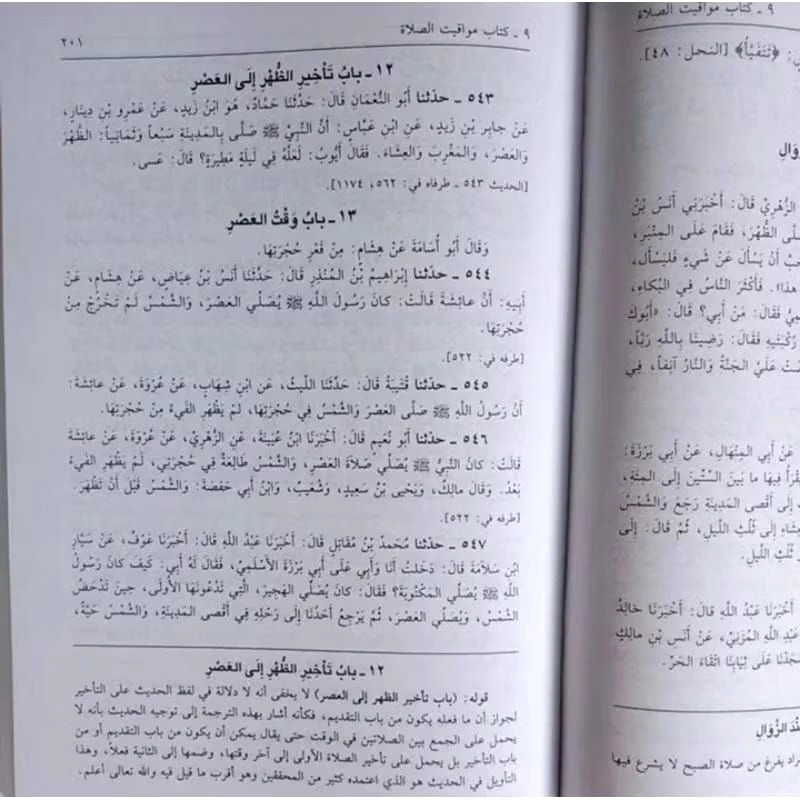 ٩ ـ كتاب مواقيت الصلاة
٢٠١
١٢ ـ بابُ تَأْخِيرِ الظُّهْرِ إِلَى العَصْرِ
٥٤٣ ـ حدّثنا أَبُو النُّعْمَانِ قَالَ: حَدَّثَنَا حَمَّادٌ، هُوَ ابْنُ زَيدٍ، عَنْ عَمْرِو بْنِ دِينَارٍ،
عَنْ جابِرِ بْنِ زَيدٍ، عَنِ ابْنِ عَبَّاسٍ: أَنَّ النَّبِيَّ ﷺ صَلَّى بِالمَدِينَةِ سَبْعاً وَثَمَانِياً: الظُّهْرَ
وَالعَصْرَ، وَالمَغْرِبَ وَالعِشَاءَ. فَقَالَ أَيُّوبُ: لَعَلَّهُ فِي لَيلَةٍ مَطِيرَةٍ؟ قالَ: عَسى.
[الحديث ٥٤٣ ـ طرفاه في: ٥٦٢، ١١٧٤].
١٣ ـ بابُ وَقْتُ العَصْرِ
وَقَالَ أَبُو أُسَامَةَ عَنْ هِشَامٍ: مِنْ قَعْرِ حُجْرَتِهَا.
٥٤٤ ـ حدّثنا إِبْرَاهِيمُ بْنُ المُنْذِرِ قَالَ: حَدَّثَنَا أَنَسُ بْنُ عِيَاضٍ، عَنْ هِشَامٍ، عَنْ
أَبِيهِ: أَنَّ عائِشَةَ قَالَتْ: كانَ رَسُولُ اللَّهِ ﷺ يُصَلِّي العَصْرَ، وَالشَّمْسُ لَمْ تَخْرُجْ مِنْ
حُجْرَتِهَا.
[طرفه في: ٥٢٢].
٥٤٥ ـ حدّثنا قُتَيبَةُ قَالَ: حَدَّثَنَا اللَّيثُ، عَنِ ابْنِ شِهَابٍ، عَنْ عُرْوَةَ، عَنْ عائِشَةَ:
أَنَّ رَسُولَ اللَّهِ ﷺ صَلَّى العَصْرَ وَالشَّمْسُ فِي حُجْرَتِهَا، لَمْ يَظْهَرِ الفَيءُ مِنْ حُجْرَتِهَا.
٥٤٦ ـ حدّثنا أَبُو نُعَيمٍ قَالَ: أَخْبَرَنَا ابْنُ عُيَينَةَ، عَنِ الزُّهْرِيِّ، عَنْ عُرْوَةَ، عَنْ عائِشَةَ
قَالَتْ: كانَ النَّبِيُّ ﷺ يُصَلِّي صَلَاةَ العَصْرِ، وَالشَّمْسُ طَالِعَةٌ فِي حُجْرَتِي، لَمْ يَظْهَرِ الفَيءُ
بَعْدُ. وَقَالَ مالِكٌ، وَيَحْيى بْنُ سَعِيدٍ، وَشُعَيبٌ، وَابْنُ أَبِي حَفصَةَ: وَالشَّمْسُ قَبْلَ أَنْ تَظْهَرَ.
[طرفه في: ٥٢٢].
٥٤٧ ـ حدّثنا مُحَمَّدُ بْنُ مُقَاتِلٍ قَالَ: أَخْبَرَنَا عَبْدُ اللَّهِ قَالَ: أَخْبَرَنَا عَوْفٌ، عَنْ سَيَّارِ
ابْنِ سَلَامَةَ قَالَ: دَخَلتُ أَنَا وَأَبِي عَلَى أَبِي بَرْزَةَ الأَسْلَمِيِّ، فَقَالَ لَهُ أَبِي: كَيفَ كانَ رَسُولُ
اللَّهِ ﷺ يُصَلِّي المَكْتُوبَةَ؟ فَقَالَ: كانَ يُصَلِّي الهَجِيرَ، الَّتِي تَدْعُونَهَا الأُولَى، حِينَ تَدْحَضُ
الشَّمْسُ، وَيُصَلِّي العَصْرَ، ثُمَّ يَرْجِعُ أَحَدُنَا إِلَى رَحْلِهِ فِي أَقْصى المَدِينَةِ، وَالشَّمْسُ حَيَّةٌ،
١٢ ـ بابُ تَأْخِيرِ الظُّهْرِ إِلَى العَصْرِ
قوله: (باب تأخير الظهر إلى العصر) لا يخفى أنه لا دلالة في لفظ الحديث على التأخير
لجواز أن ما فعله يكون من باب التقديم، فكأنه أشار بهذه الترجمة إلى توجيه الحديث بأنه لا
يحمل على الجمع بين الصلاتين في الوقت حتى يقال يمكن أن يكون من باب التقديم أو من
باب التأخير بل يحمل على تأخير الصلاة الأولى إلى آخر وقتها، وضمها إلى الثانية فعلاً، وهذا
التأويل في الحديث هو الذي اعتمده كثير من المحققين وهو أقرب ما قيل فيه والله تعالى أعلم.
٩ ـ كتاب مواقيت الصلاة
﴿تَتَفَيَّأُ﴾ [النحل: ٤٨].
الزُّهْرِيِّ قَالَ: أَخْبَرَنِي أَنَسُ بْنُ
الظُّهْرَ، فَقَامَ عَلَى المِنْبَرِ،
أَنْ يَسْأَلَ عَنْ شَيءٍ فَليَسْأَل،
هذا». فَأَكْثَرَ النَّاسُ فِي البُكَاءِ،
فَقَالَ: مَنْ أَبِي؟ قَالَ: «أَبُوكَ
رُكْبَتَيهِ فَقَالَ: رَضِينَا بِاللَّهِ رَبّاً،
عَلَيَّ الجَنَّةُ وَالنَّارُ آنِفاً، فِي
عَنْ أَبِي المِنْهَالِ، عَنْ أَبِي بَرْزَةَ:
فِيهَا ما بَينَ السِّتِّينَ إِلَى المِئَةِ،
إِلَى أَقْصى المَدِينَةِ رَجَعَ وَالشَّمْسُ
إِلَى ثُلُثِ اللَّيلِ، ثُمَّ قَالَ: إِلَى
ثُلُثِ اللَّيلِ.
عَبْدُ اللَّهِ قَالَ: أَخْبَرَنَا خالِدُ
عَبْدِ اللَّهِ المُزَنِيِّ، عَنْ أَنَسِ بْنِ مالِكٍ
عَلَى ثِيَابِنَا اتِّقَاءَ الحَرِّ.
الزَّوَالِ
يفرغ من صلاة الصبح لا يشرع فيها